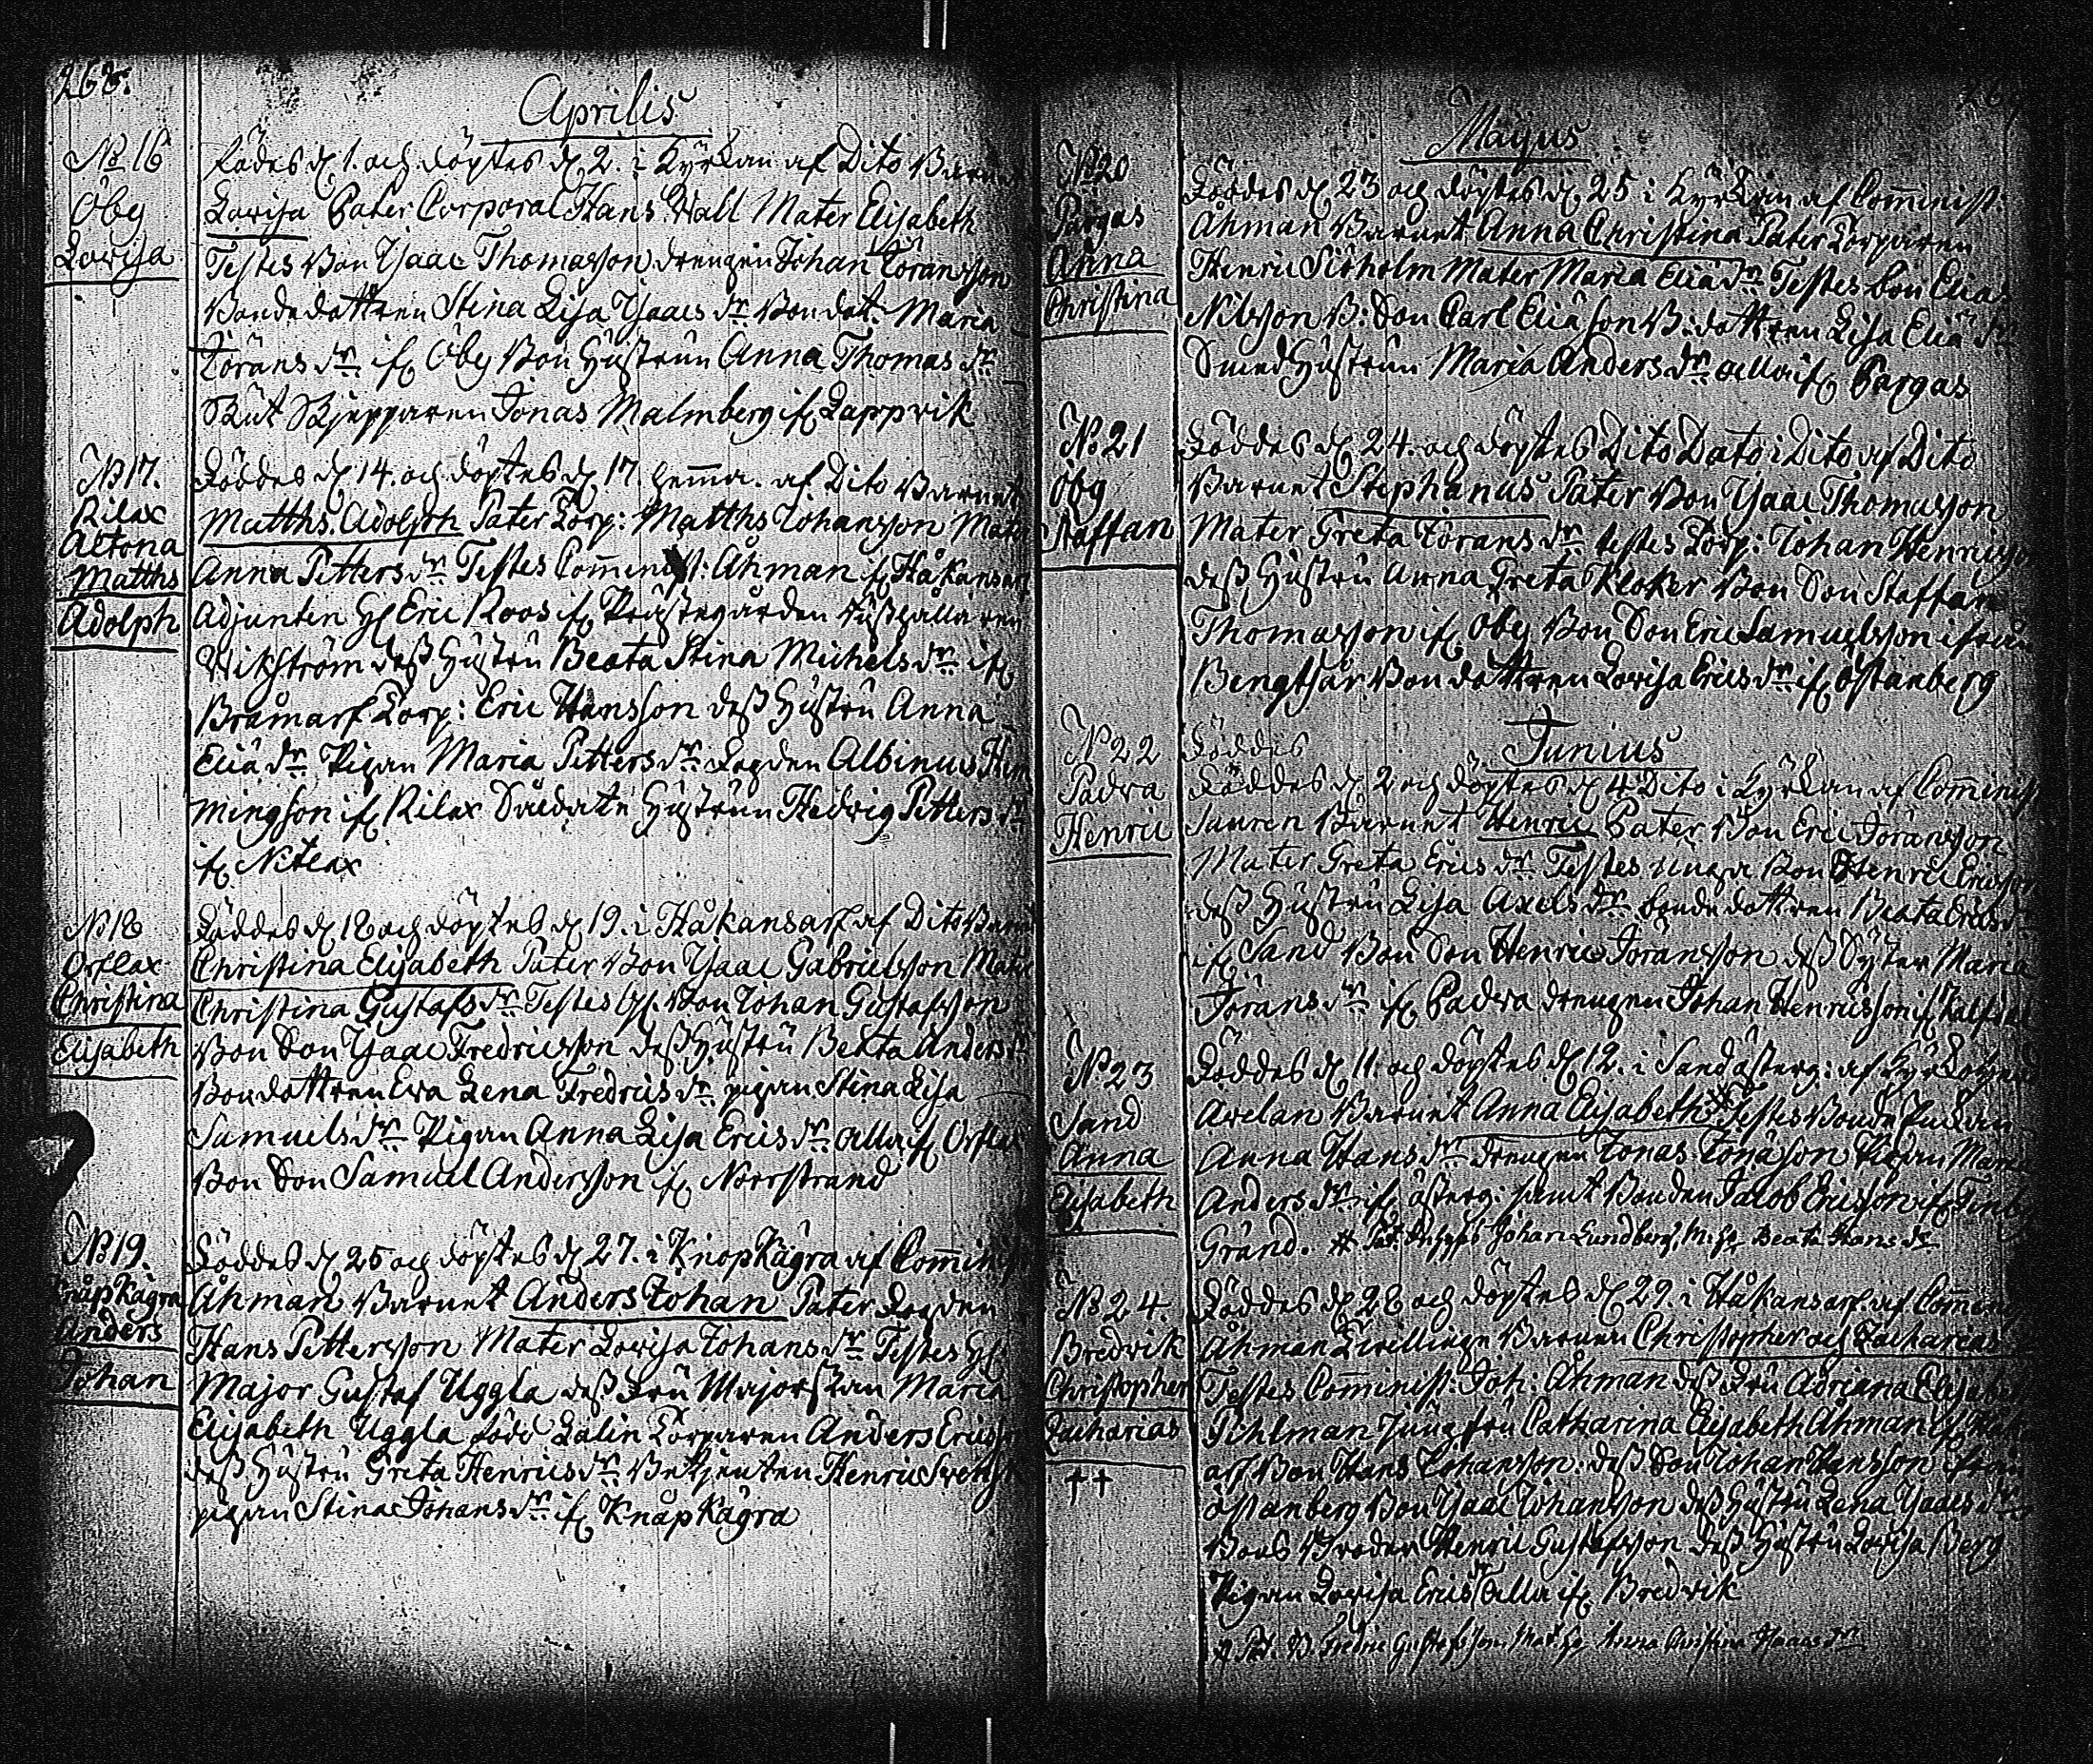 268.
Aprilis
No 16
Öby
Lovisa
Föddes d. 1. och döptes d. 2. i Kyrkan af Dito Barnet
Lovisa Pater Corporal Hans Wall Mater Elisabeth
Testes Bon Isaac Thomasson drengen Johan Göransson
Bondedottren Stina Lisa Isaacs dr Bondot. Maria
Görans dr if. Öby Bon Hustrun Anna Thomas dr
Skut Skjepparen Jonas Malmberg if. Lappvik
No 17.
Rilax
Altona
Matths
Adolph
Föddes d. 14. och döptes d. 17. hemma. af. Dito Barnet
Matths. Adolph Pater Torp: Matths Johansson Mater
Anna Petters dr Testes Comminist: Åhman if. Håkansarf
Adjunten H. Eric Roos if. Prästegården
Wikström dess Hustru Beata Stina Michels dr if.
Bråmarf Torp: Eric Hansson dess Hustru Anna
Eliæ dr Pigan Maria Petters dr Legden Albinus Hem
mingson if. Rilax Hustrun Hedvig Petters dr
if. Nitlax
No 18
Orslax
Christina
Elisabeth
Föddes d. 18 och döptes d. 19. i Håkansarf af Dito Barnet
Christina Elisabeth Pater Bon Isaac Gabrielsson Mater
Christina Gustafs dr Testes Bon Johan Gustafsson
Bon Son Isaac Fredricsson dess Hustru Beata Anders dr
Bondottren Eva Lena Fredrics dr pigan Stina Lisa
Samuels dr Pigan Anna Lisa Erics dr alla if. Orslax
Bon Son Samuel Andersson if. Norrstrand
No 19.
Knåpkägra
Anders
Johan
Föddes d. 25 och döptes d. 27. i Knopkägra af Comminist
Åhman Barnet Anders Johan Pater Legden
Hans Pettersson Mater Lovisa Johans dr Testes H.
Major Gustaf Uggla dess Fru Majorskan Maria
Elisabeth Uggla född Lalin Torparen Anders Ericss
dess Hustru Greta Henrics dr Betjenten Henric Svensson
pigan Stina Johans dr if. Knåpkägra
Majus
No 20
Pargas
Anna
Christina
Föddes d. 23 och döptes d. 25 i Kyrkan af Comminist:
Åhman Barnet Anna Christina Pater Torparen
Henric Siöholm Mater Maria Eliæ dr Testes Bon Elias
Nilsson B: Son Carl Eliæson B: dottren Lisa Eliæ dr
Smed Hustrun Maria Anders dr alla if. Pargas
No 21
Öby
Staffan
Föddes d. 24. och döptes Dito Dato i Dito af Dito
Barnet Stephanus Pater Bon Isaac Thomasson
Mater Greta Görans dr testes Torp: Johan Henricsson
dess Hustru Anna Greta Klöker Bon Son Staffan
Thomasson if. Öby Bon Son Eric Samuelsson ifrån
Bengtsår Bondottren Lovisa Erics dr if. Östanberg
Junius
No 22
Padva
Henric
Föddes
Föddes d. 2 och döptes d. 4 Dito i Kyrkan af Comminist
Barnet Henric Pater Bon Eric Göransson
Mater Greta Erics dr Testes unga Bon Henric Ericsson
dess Hustru Lisa Axels dr bondedottren Beata Erics dr
if. Sand Bon Son Henric Göransson dess Syster Maria
Görans dr if. Padva drengen Johan Henricsson if.
No 23
Sand
Anna
Elisabeth
Föddes d. 11. och döptes d. 12. i Sand österg: af
Avelan Barnet Anna Elisabeth # Testes Bonde
Anna Hans dr drengen Jonas Jonæson Pigan Maria
Anders dr if. österg: samt Bonden Jacob Ericsson if.
Gränd. # Pat. Johan Lundberg, M. Beata Hans dr
No 24.
Bredvik
Christopher
Zacharias
††
Föddes d. 28 och döptes d. 29. i Håkansarf. af Comminist
Åhman Twillinge Barnen Christopher och Zacharias
Testes Comminist: Joh: Åhman dess Fru Adriana Elisabet
Pihlman Jungfru Catharina Elisabeth Åhman if. Håkans
arf Bon Hans Johansson: dess Son Johan Hansson ifrån
Östanberg Bon Isaac Johansson dess Hustru Lena Isaacs dr
Bons Broder Henric Gustafsson dess Hustru Lovisa Berg
Pigan Lovisa Erics dr alla if. Bredvik
# Pat. B. Fredric Gustafsson Mat. Anna Christina Hans dr